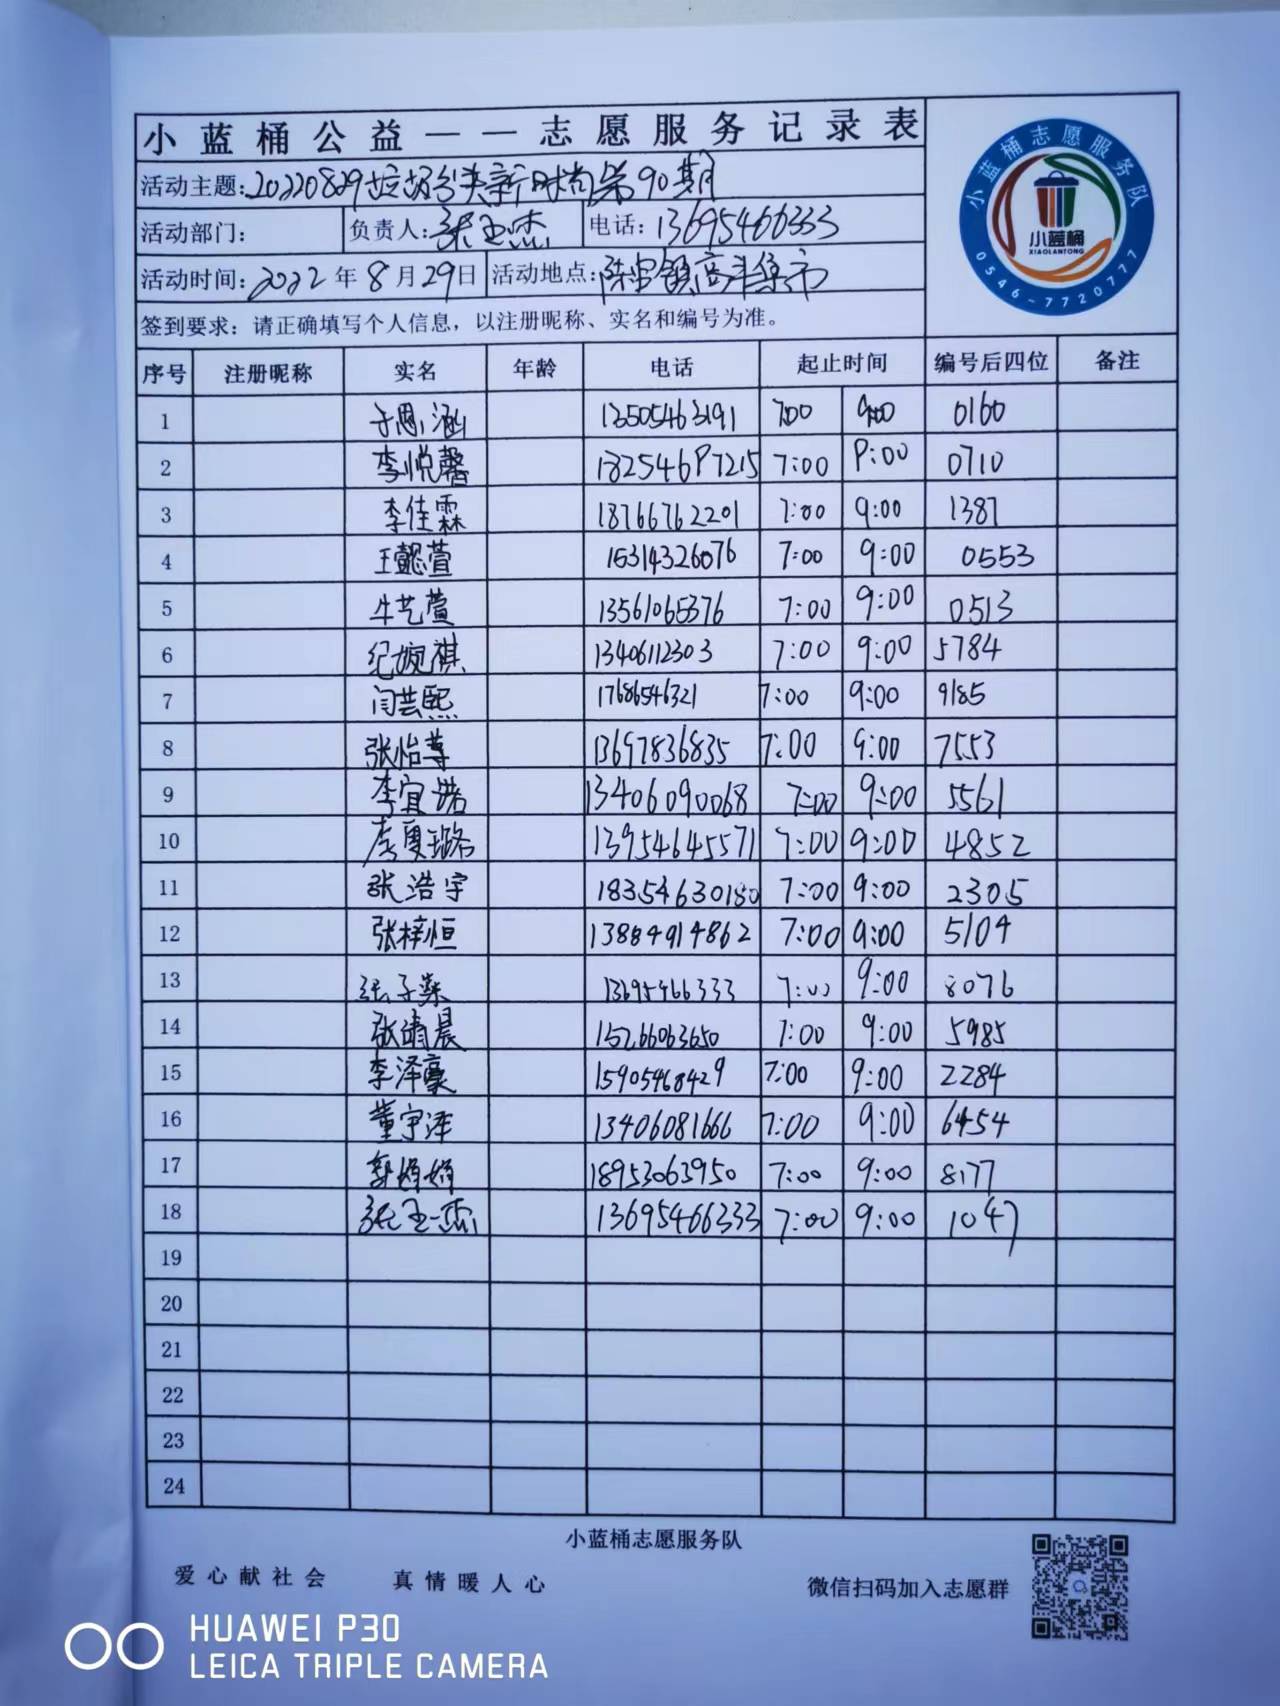 小蓝桶公益——志愿服务记录表
活动主题：20220829垃圾分类新时尚第90期
活动部门： 负责人：张玉杰 电话：13695466333
活动时间：2022年8月29日 活动地点：陈官镇高斗集市
签到要求：请正确填写个人信息，以注册昵称、实名和编号为准。
小蓝桶志愿服务队
小蓝桶
XIAOLANTONG
0546-7720777
序号 注册昵称 实名 年龄 电话 起止时间 编号后四位 备注
1 于恩涵 13505463191 7:00 9:00 0160
2 李悦馨 182546P7215 7:00 P:00 0710
3 李佳霖 18766762201 7:00 9:00 1387
4 王懿萱 15314326076 7:00 9:00 0553
5 牛艺萱 13561065376 7:00 9:00 0513
6 纪婉祺 13406112303 7:00 9:00 5784
7 闫芸熙 17686546321 7:00 9:00 9185
8 张怡 13697836835 7:00 9:00 7553
9 李宜诺 13406090068 7:00 9:00 5561
10 李夏璐 13954645571 7:00 9:00 4852
11 张浩宇 18354630180 7:00 9:00 2305
12 张梓恒 13884914862 7:00 9:00 5104
13 张子 13695466333 7:00 9:00 8076
14 张靖晨 15266063650 7:00 9:00 5985
15 李泽豪 15905468429 7:00 9:00 2284
16 董宇泽 13406081666 7:00 9:00 6454
17 郭娟娟 18953063950 7:00 9:00 8177
18 张玉杰 13695466333 7:00 9:00 1047
19
20
21
22
23
24
小蓝桶志愿服务队
爱心献社会 真情暖人心 微信扫码加入志愿群
HUAWEI P30
LEICA TRIPLE CAMERA